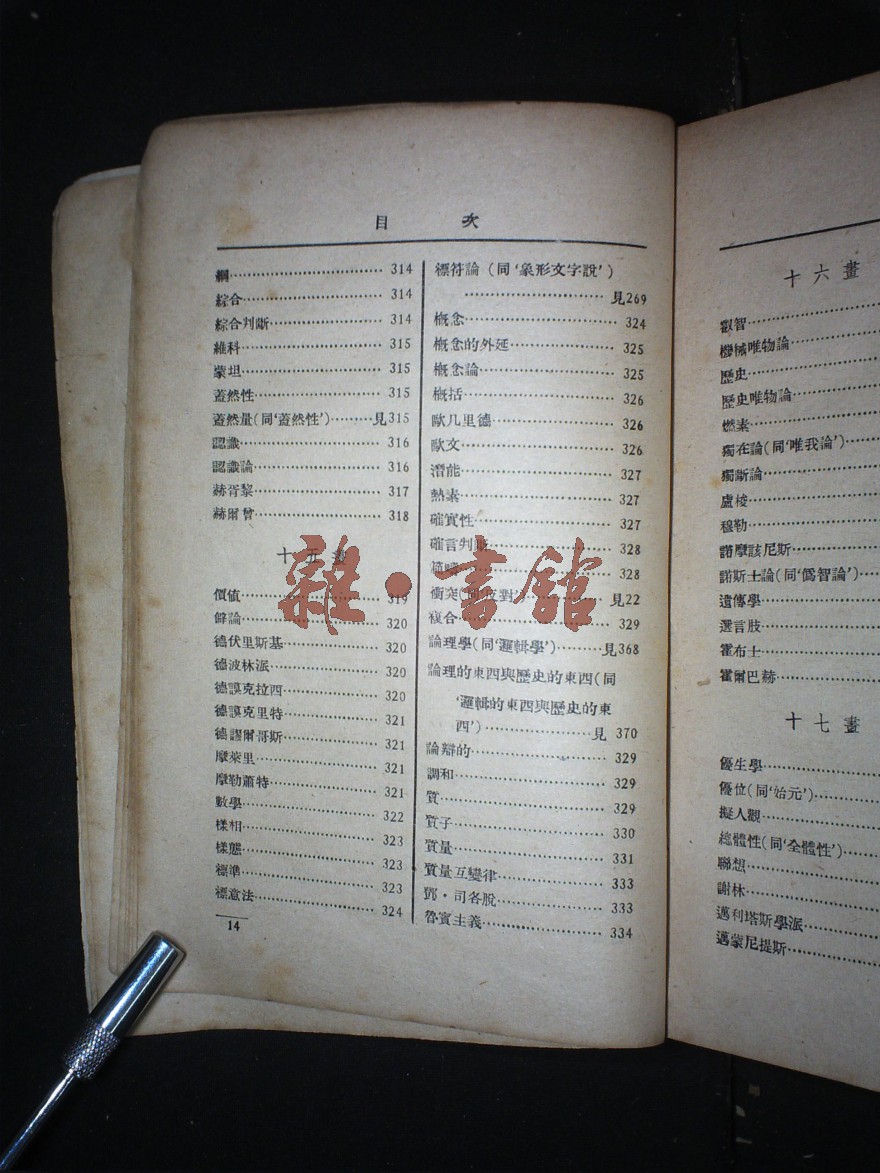 目 次
綱 314
綜合 314
綜合判斷 314
維科 315
蒙坦 315
蓋然性 315
蓋然量(同‘蓋然性’) 見315
認識 316
認識論 316
赫胥黎 317
赫爾曾 318
十五畫
價值 319
僻論 320
德伏里斯基 320
德波林派 320
德謨克拉西 320
德謨克里特 321
德謬爾哥斯 321
摩萊里 321
摩勒蕭特 321
數學 322
樣相 323
樣態 323
標準 323
標意法 324
14
標符論(同‘象形文字說’)
見269
概念 324
概念的外延 325
概念論 325
概括 326
歐几里德 326
歐文 326
潛能 327
熱素 327
確實性 327
確言判斷 328
範疇 328
衝突(同‘反對’) 見22
複合 329
論理學(同‘邏輯學’) 見368
論理的東西與歷史的東西(同
‘邏輯的東西與歷史的東
西’) 見 370
論辯的 329
調和 329
質 329
質子 330
質量 331
質量互變律 333
鄧·司各脫 333
魯賓主義 334
十六畫
叡智
機械唯物論
歷史
歷史唯物論
燃素
獨在論(同‘唯我論’)
獨斷論
盧梭
穆勒
諾摩該尼斯
諾斯士論(同‘僞智論’)
遺傳學
選言肢
霍布士
霍爾巴赫
十七畫
優生學
優位(同‘始元’)
擬人觀
總體性(同‘全體性’)
聯想
謝林
邁利塔斯學派
邁蒙尼提斯
雜·書館